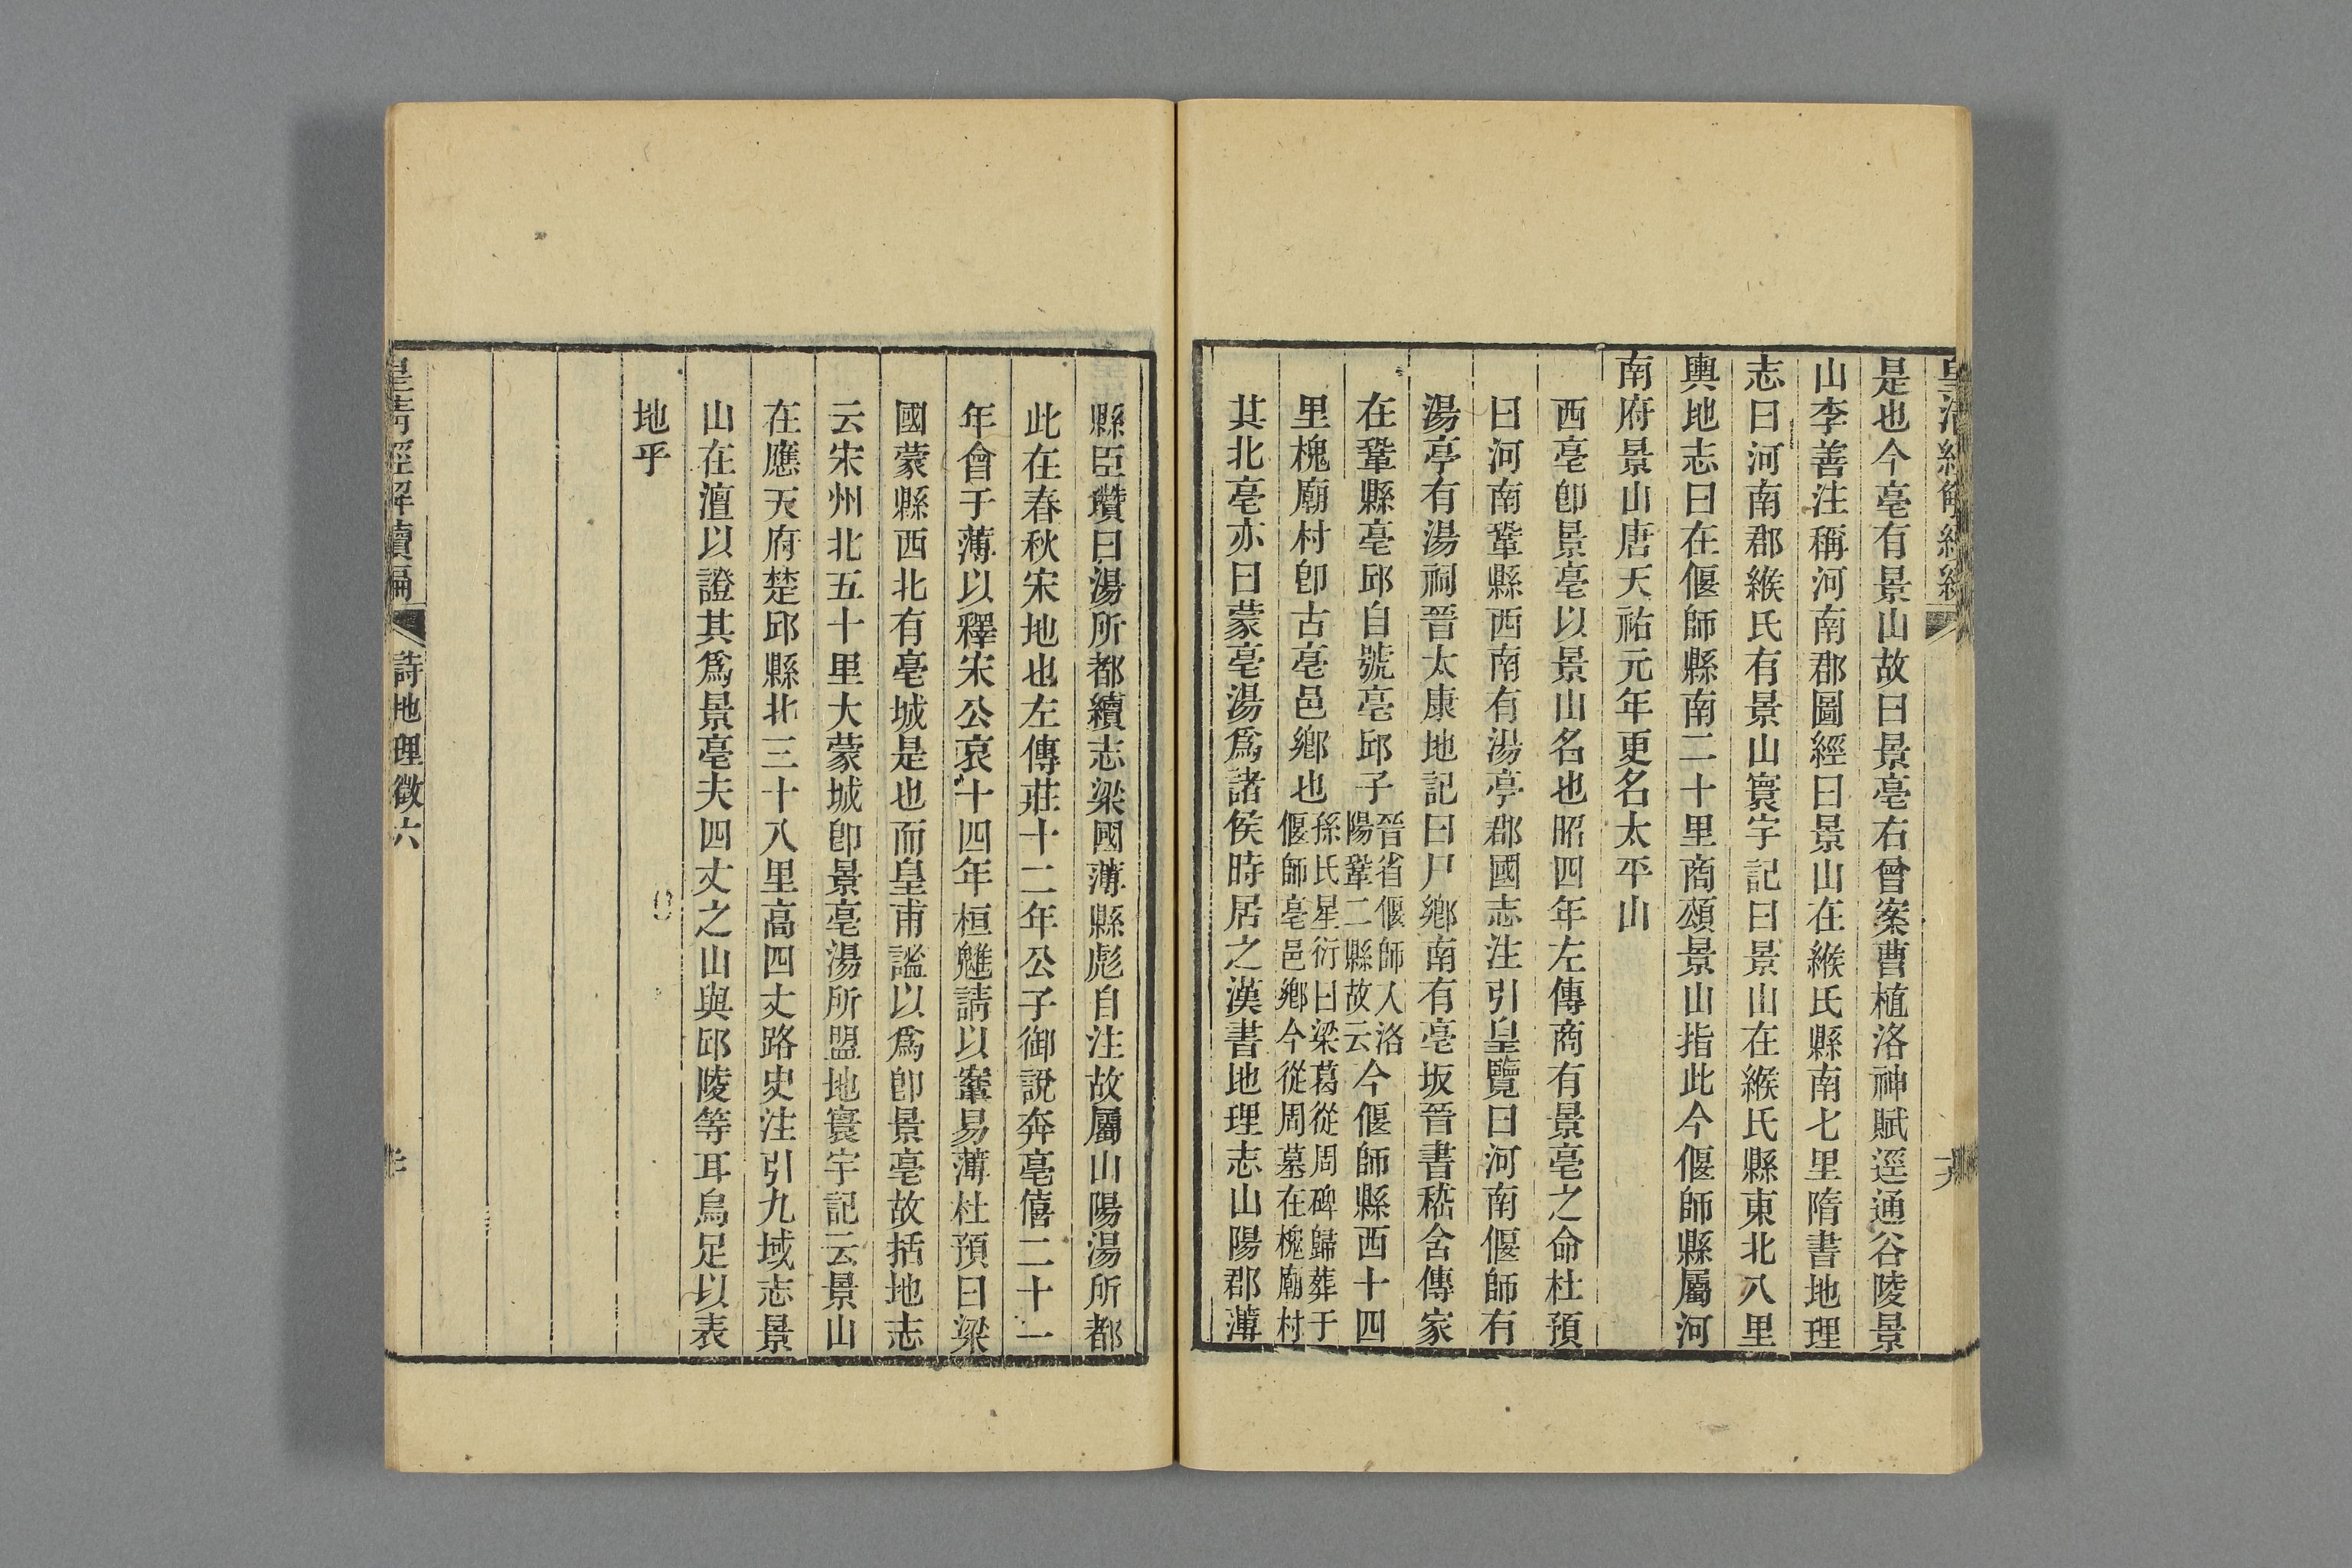 是也今亳有景山故曰景亳右曾案曹植洛神賦逕通谷陵景
山李善注稱河南郡圖經曰景山在緱氏縣南七里隋書地理
志曰河南郡緱氏有景山寰宇記曰景山在緱氏縣東北八里
輿地志曰在偃師縣南二十里商頌景山指此今偃師縣屬河
南府景山唐天祐元年更名太平山
西亳卽景亳以景山名也昭四年左傳商有景亳之命杜預
曰河南鞏縣西南有湯亭郡國志注引皇覽曰河南偃師有
湯亭有湯祠晉太康地記曰尸鄉南有亳坂晉書嵇含傳家
在鞏縣亳邱自號亳邱子晉省偃師人洛陽鞏二縣故云今偃師縣西十四
里槐廟村卽古亳邑鄉也孫氏星衍曰梁葛從周碑歸葬于偃師亳邑鄉今從周墓在槐廟村
其北亳亦曰蒙亳湯爲諸侯時居之漢書地理志山陽郡薄
縣臣瓚曰湯所都續志梁國薄縣彪自注故屬山陽湯所都
此在春秋宋地也左傳莊十二年公子御說奔亳僖二十一
年會于薄以釋宋公哀十四年桓魋請以鞌易薄杜預曰梁
國蒙縣西北有亳城是也而皇甫謐以爲卽景亳故括地志
云宋州北五十里大蒙城卽景亳湯所盟地寰宇記云景山
在應天府楚邱縣北三十八里高四丈路史注引九域志景
山在澶以證其爲景亳夫四丈之山與邱陵等耳烏足以表
地乎
皇清經解續編
詩地理徵六